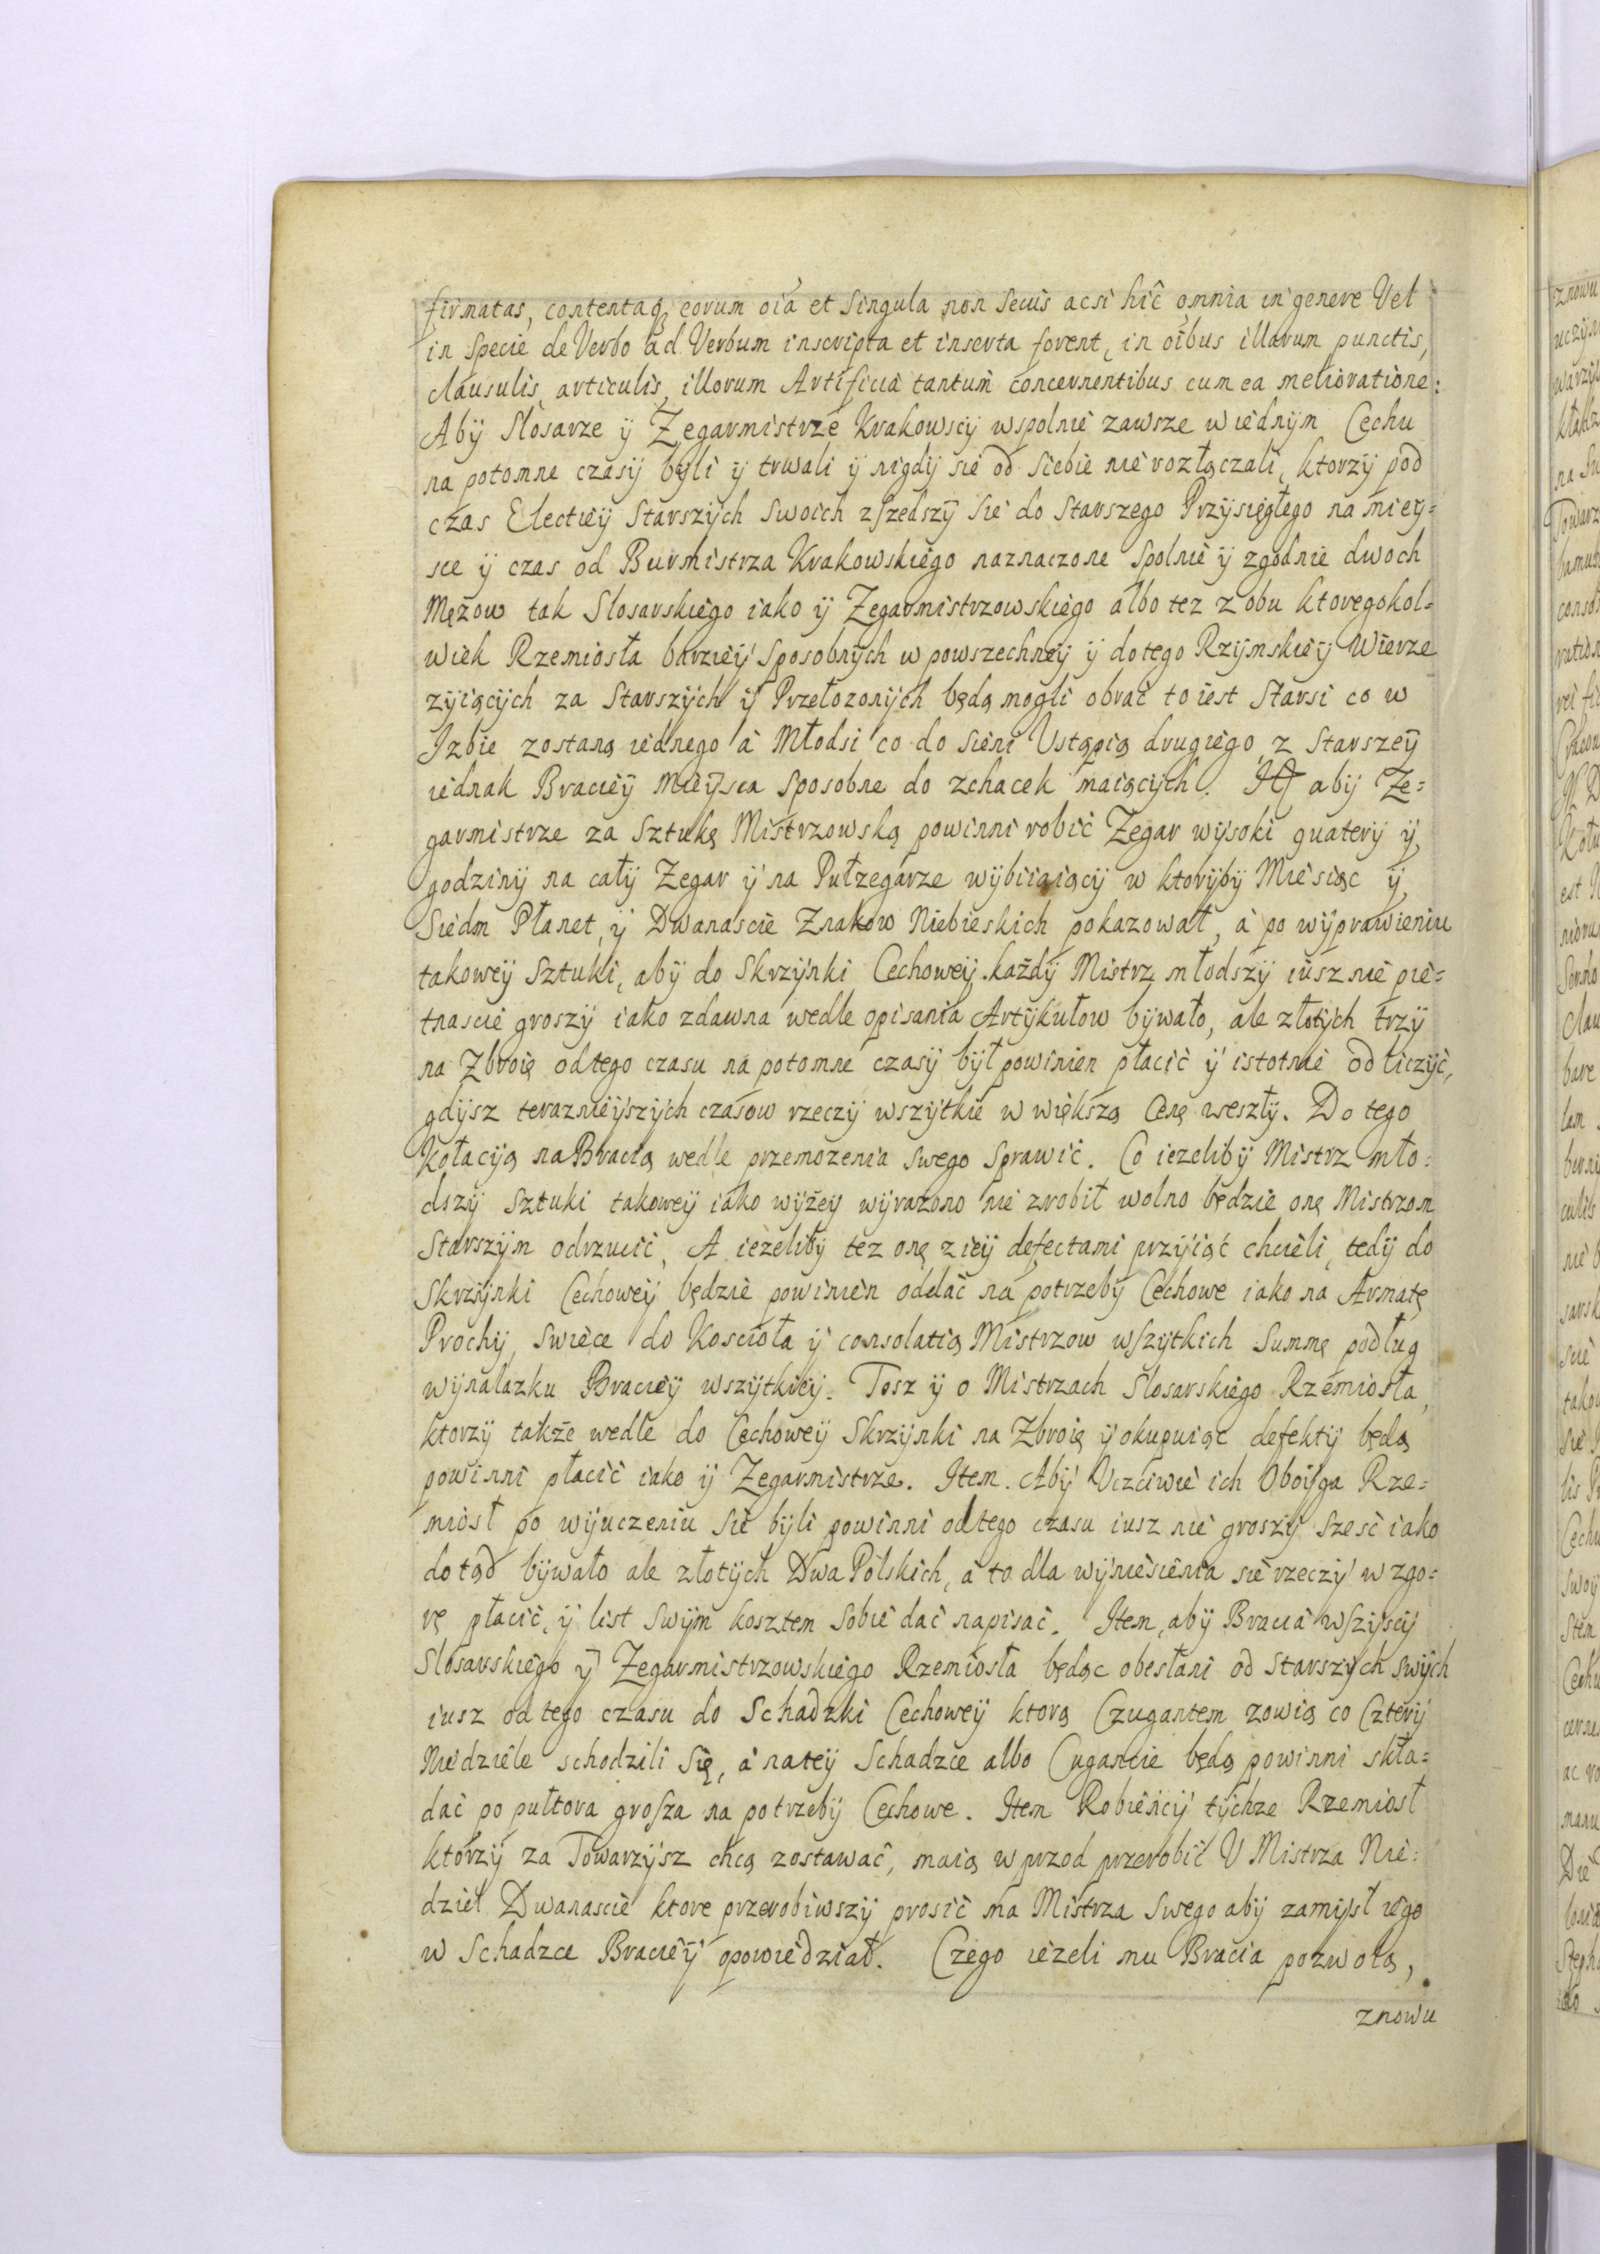 firmatas, contentaq́ eorum oiã et singula non secus acsi hic omnia in genere Vel
in specie de Verbo ad Verbum inscripta et inserta forent, in oibus illarum punctis,
clausulis, articulis, illorum Artificia tantum concernentibus cum ea melioratione:
Abÿ Slosarze ÿ Zegarmistrze Krakowscÿ wspolnie zawsze w iednÿm Cechu
na potomne czasÿ bÿli ÿ trwali ÿ nigdÿ sie od siebie nie rozłączali, ktorzÿ pod
czas Electieÿ Starszÿch swoich zszedszÿ sie do Starszego Przÿsięgłego na miey=
sce ÿ czas od Burmistrza Krakowskiego naznaczone spolnie ÿ zgodnie dwoch
Mężow tak Slosarskiego iako ÿ Zegarmistrzowskiego albo tez z obu ktoregokol=
wiek Rzemiosła barzieÿ sposobnÿch w powszechneÿ ÿ do tego Rzÿmskieÿ Wierze
zÿiącÿch za Starszÿch ÿ Przełozonÿch będą mogli obrać to iest Starsi co w
Izbie zostaną iednego à Młodsi co do sieni Ustąpią drugiego, z Starszeÿ
iednak Bracieÿ Mieÿsca sposobne do zchacek maiącÿch. It abÿ Ze=
garmistrze za Sztukę Mistrzowską powinni robić Zegar wÿsoki quaterÿ ÿ
godzinÿ na całÿ Zegar ÿ na Pułzegarze wÿbiiaiącÿ w ktorÿbÿ Miesiąc ÿ
Siedm Płanet, ÿ Dwanascie Znakow Niebieskich pokazował, à po wÿprawieniu
takoweÿ Sztuki, abÿ do Skrzÿnki Cechoweÿ każdÿ Mistrz młodszÿ iusz nie pie=
tnascie groszÿ iako zdawna wedle opisania Artÿkułow bÿwało, ale złotÿch trzÿ
na Zbroię od tego czasu na potomne czasÿ bÿł powinien płacić ÿ istotnie odliczÿć,
gdÿsz teraznieÿszÿch czasow rzeczÿ wszÿtkie w większą Cenę weszłÿ. Do tego
Kołacÿą na Bracią wedle przemozenia swego sprawić. Co iezelibÿ Mistrz mło=
dszÿ Sztuki takoweÿ iako wÿżey wÿrażono nie zrobił wolno będzie onę Mistrzom
Starszÿm odrzucić, A ieżelibÿ tez onę z ieÿ defectami przÿiąć chcieli, tedÿ do
Skrzÿnki Cechoweÿ będzie powinien oddać na potrzebÿ Cechowe iako na Armatę
Prochÿ, Swiece do Koscioła ÿ consolatią Mistrzow wszÿtkich Summę podług
wÿnalazku Bracieÿ wszÿtkieÿ. Tosz ÿ o Mistrzach Slosarskiego Rzemiosła,
ktorzÿ także wedle do Cechoweÿ Skrzÿnki na Zbroię ÿ okupuiąc defektÿ będą
powinni płacić iako ÿ Zegarmistrze. Item. Abÿ Uczciwie ich Oboÿga Rze=
miosł po wÿuczeniu sie bÿli powinni od tego czasu iusz nie groszÿ sześć iako
do tąd bÿwało ale złotÿch Dwa Polskich, à to dla wÿniesienia sie rzeczÿ w zgo=
rę płacić, ÿ list swÿm kosztem sobie dać napisać. Item, abÿ Bracia wszÿscÿ
Slosarskiego ÿ Zegarmistrzowskiego Rzemiosła będąc obesłani od Starszÿch swÿch
iusz od tego czasu do Schadzki Cechoweÿ ktorą Czugantem zowią co Czterÿ
Niedziele schodzili się, à na teÿ Schadzce albo Cugancie będą powinni skła=
dać po pułtora grosza na potrzebÿ Cechowe. Item Robieńcÿ tÿchze Rzemiosł
ktorzÿ za Towarzÿsz chcą zostawać, maią wprzod przerobić U Mistrza Nie=
dziel Dwanascie ktore przerobiwszÿ prosić ma Mistrza swego abÿ zamÿsł iego
w Schadzce Bracieÿ opowiedział. Czego ieżeli mu Bracia pozwolą,
znowu